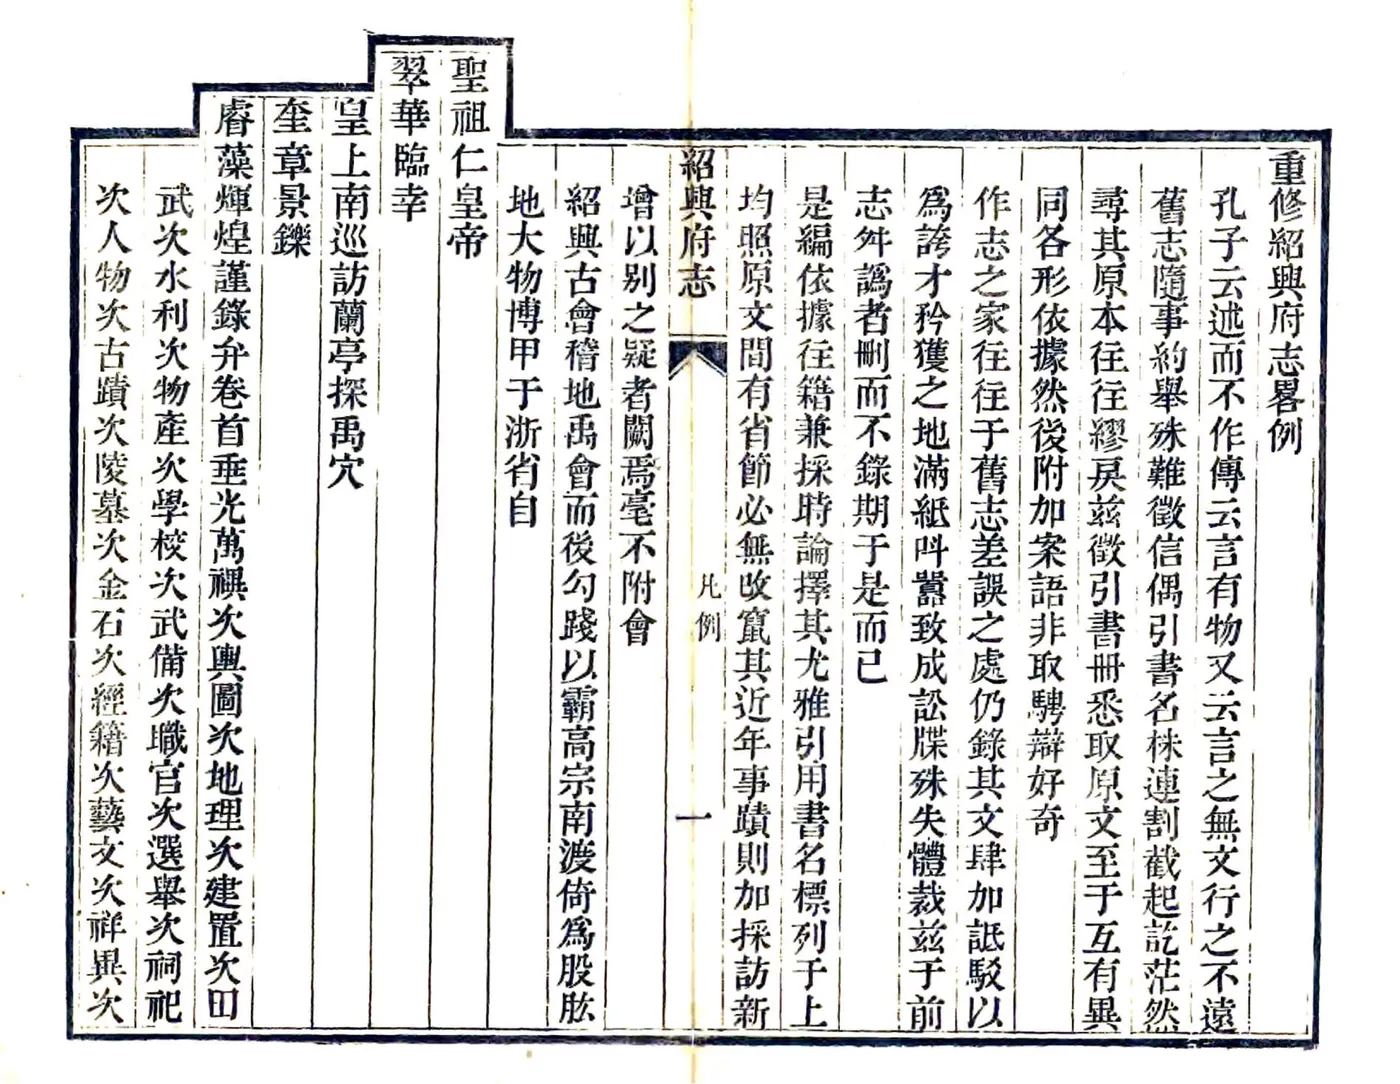 重修紹興府志畧例
孔子云述而不作傳云言有物又云言之無文行之不遠
舊志隨事約舉殊難徵信偶引書名株連割截起訖茫然
尋其原本往往繆戾兹徵引書冊悉取原文至于互有異
同各形依據然後附加案語非取騁辯好奇
作志之家往往于舊志差誤之處仍錄其文肆加詆駁以
爲誇才矜獲之地滿紙呌囂致成訟牒殊失體裁兹于前
志舛譌者刪而不錄期于是而已
是編依據往籍兼採時論擇其尤雅引用書名標列于上
均照原文間有省節必無改竄其近年事蹟則加採訪新
紹興府志
凡例
一
增以别之疑者闕焉毫不附會
紹興古會稽地禹會而後勾踐以霸高宗南渡倚爲股肱
地大物博甲于浙省自
聖祖仁皇帝
翠華臨幸
皇上南巡訪蘭亭探禹穴
奎章景鑠
睿藻煇煌謹錄弁卷首垂光萬禩次輿圖次地理次建置次田
武次水利次物產次學校次武備次職官次選舉次祠祀
次人物次古蹟次陵墓次金石次經籍次藝文次祥異次